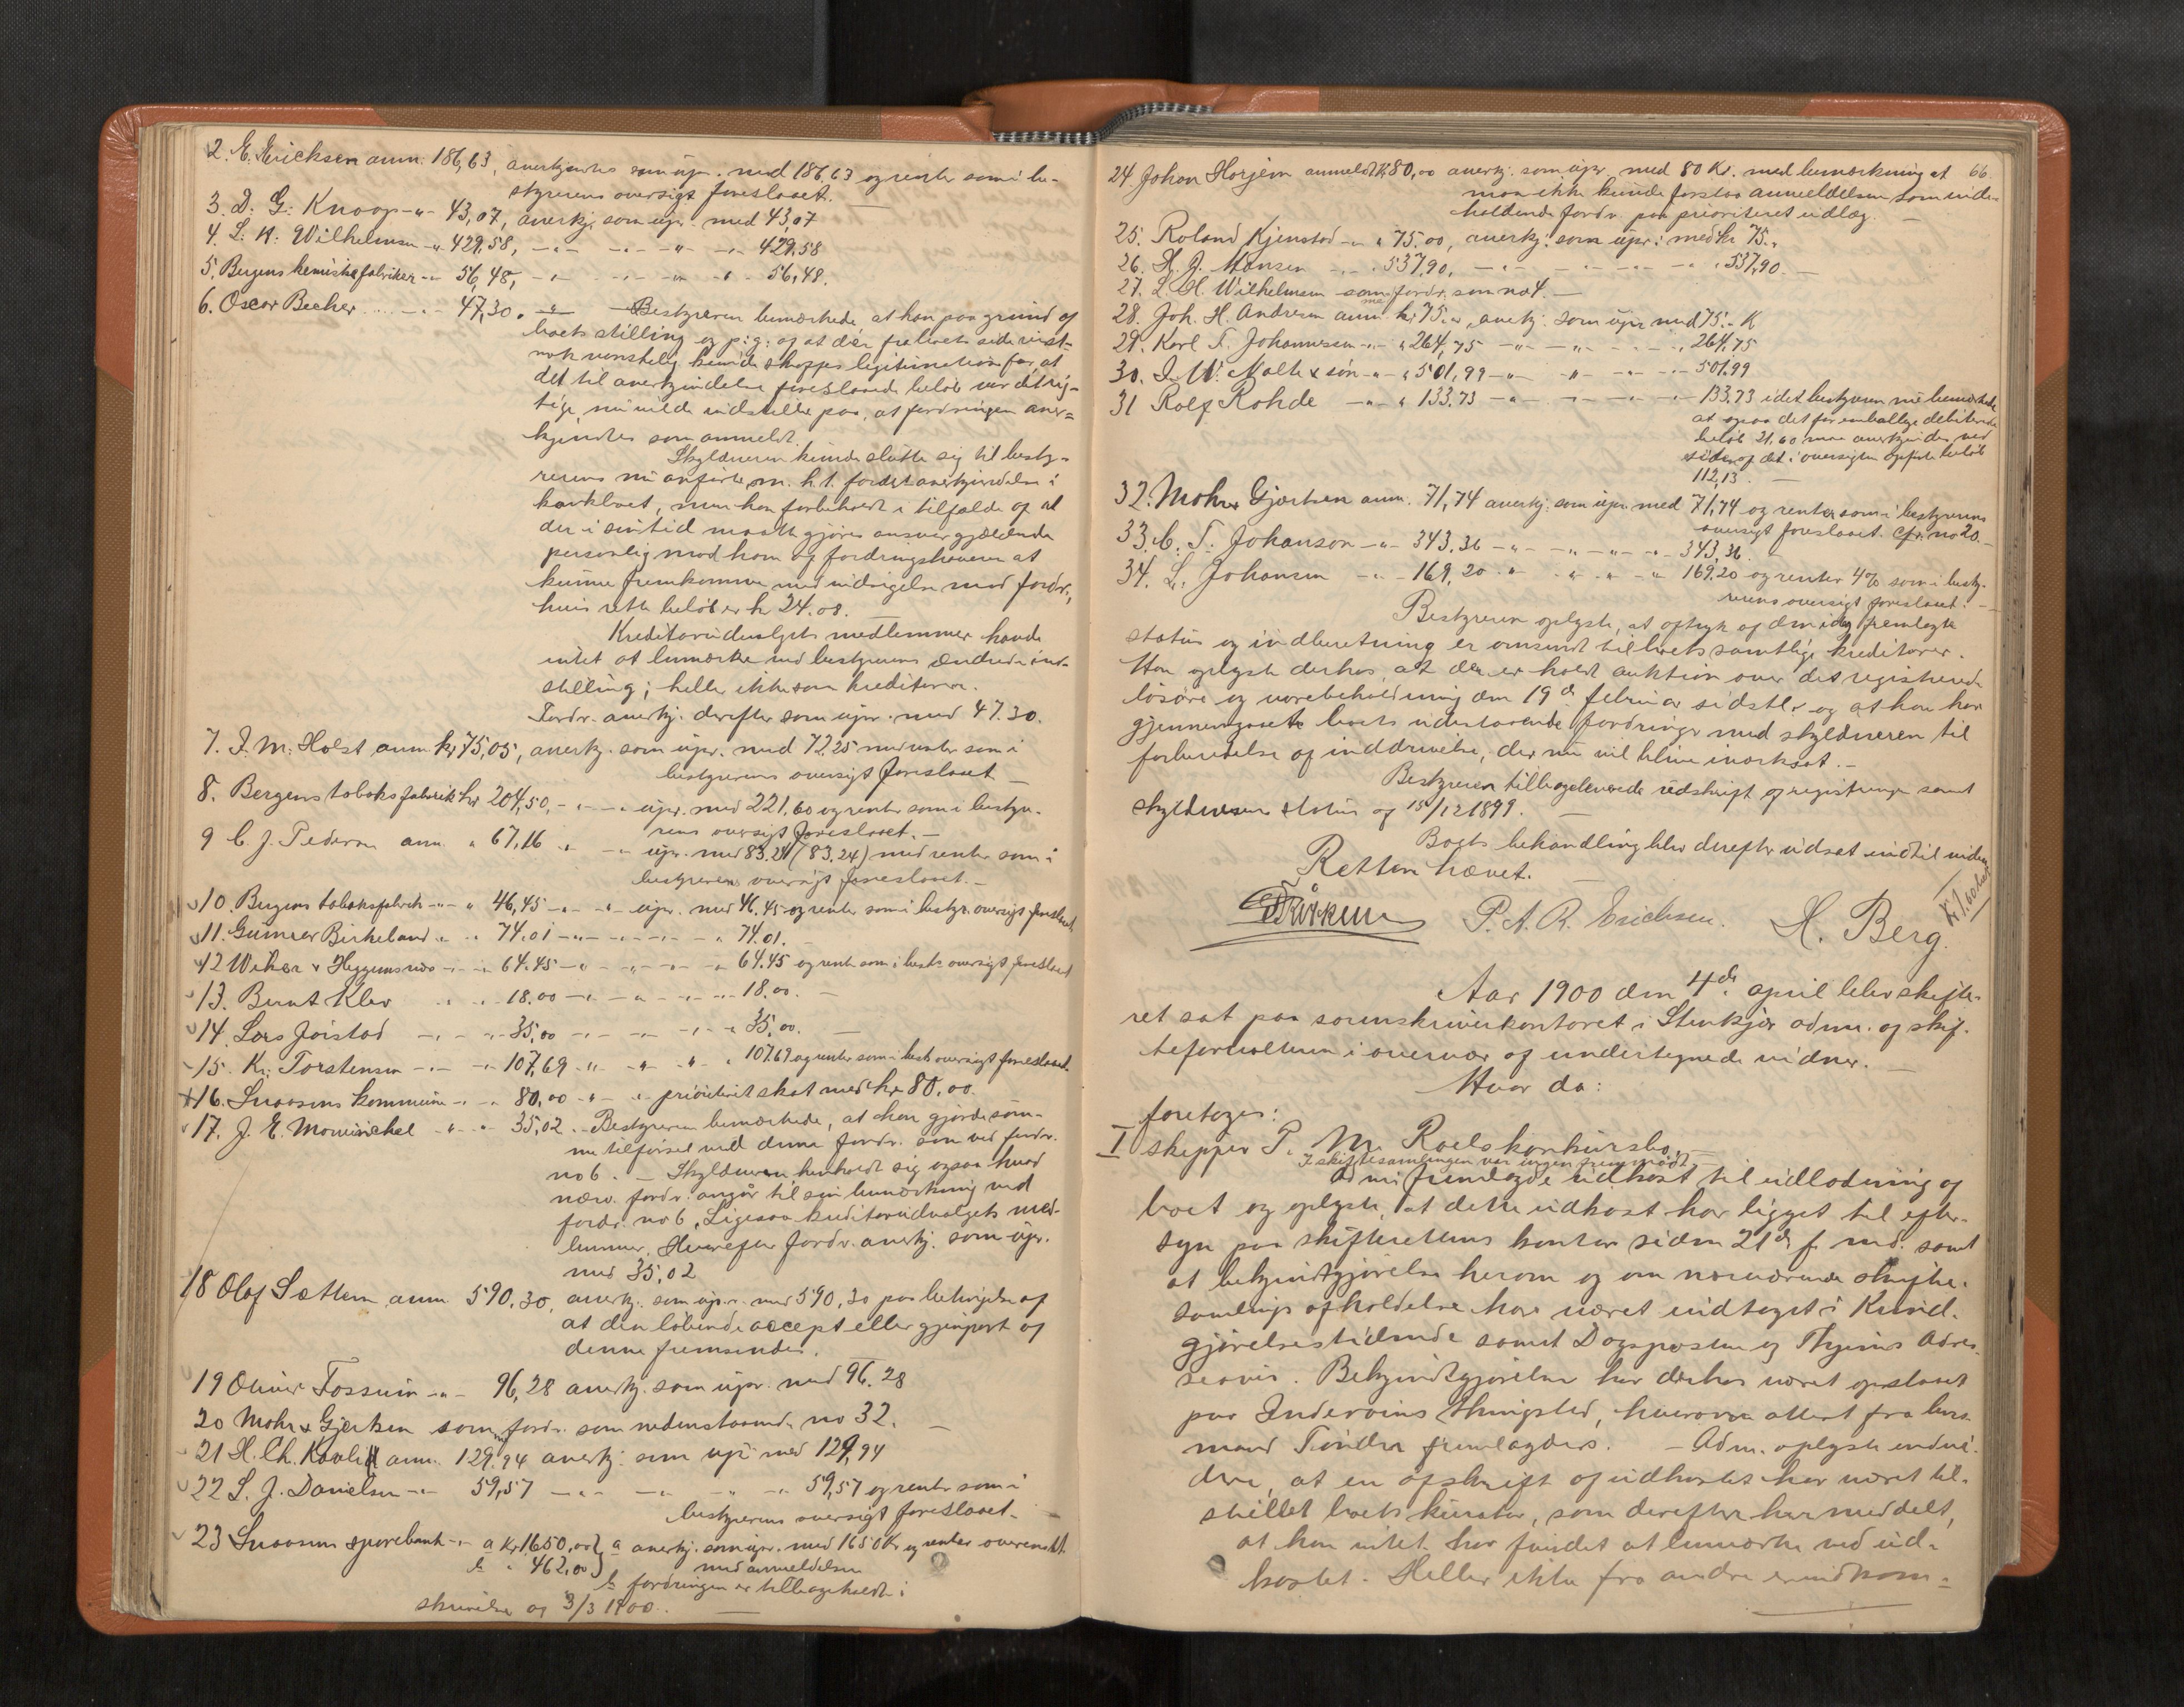 2. E. Ericksen anm. 186,63, anerkjendtes som upr. med 186,63 og renter som i be-
styrerens oversigt foreslaaet.
3. D. G. Knoop -"- 43,07, anerkj. som upr. med 43,07
4. L. H. Wilhelmsen -"- 429,58, -"- -"- -"- 429,58
5. Bergens kemiske fabriker -"- 56,48, -"- -"- -"- 56,48.
6. Oscar Becher -"- 47,30. -"- Bestyreren bemærkede, at han paa grund af
boets stilling og p. g. af at der fra boets side vist-
nok vanskelig kunde skaffes legitimation for, at
det til anerkjendelse foreslaaede beløb var det rig-
tige, nu vilde indstille paa, at fordringen aner-
kjendtes som anmeldt.
Skyldneren kunde slutte sig til besty-
rerens nu anførte m. h. t. fordr. anerkjendelse i
konkboet, men han forbeholdt i tilfælde af at
der i sin tid maatte gjøres ansvar gjældende
personlig mod ham og fordringshaveren at
kunne fremkomme med indsigelse mod fordr.,
hvis rette beløb er kr 24.08.
Kreditorudvalgets medlemmer havde
intet at bemærke ved bestyrerens ændrede ind-
stilling; heller ikke som kreditorer.
Fordr. anerkj. derefter som upr. med 47.30.
7. J. M. Holst anm. kr 75,05, anerkj. som upr. med 72,25 med renter som i
bestyrerens oversigt foreslaaet
8. Bergens tobaksfabrik kr 204,50, -"- -"- upr. med 221,60 og renter som i besty-
rens oversigt foreslaaet.
9 C. J. Pedersen anm. " 67,16 " -"- upr. med 83.24 (83.24) med renter som i
bestyrerens oversigt foreslaaet.
10. Bergens tobaksfabrik -"- " 46,45 -"- -"- upr. med 46.45 og renter som i bestyr. oversigt foreslaaet
11. Gunner Birkeland " " 74.01 -"- -"- -"- " 74.01.
12 Wiker & Heggemsnes -"- " 64.45 -"- -"- -"- " 64.45 og rente som i best. oversigt foreslaaet
13. Bernt Klev " " 18.00 -"- -"- -"- 18.00.
14. Lars Jørstad -"- -"- 35,00 -"- -"- -"- " 35,00.
15. Kr. Torstensen -"- -"- 107,69 " " " " 107.69 og renter som i best. oversigt foreslaaet.
16. Snaasens kommune -"- " 80,00 -"- " prioriteret skat med kr 80,00.
17. J. E. Mowinckel " " 35,02. - Bestyreren bemærkede, at han gjorde sam-
me tilførsel ved denne fordr. som ved fordr.
no 6. - Skyldneren henholdt sig ogsaa hvad
nærv. fordr. angår til sin bemærkning ved
fordr. no 6, Ligesaa kreditorudvalgets med-
lemmer. Hvorefter fordr. anerkj. som upr.
med 35,02
18 Olaf Sættem anm 590.30, anerkj. som upr. med 590,30 paa betingelse af
at den løbende accept eller gjenpart af
denne fremsendes.
19 Oliver Fossum -"- 96,28 anerkj. som upr. med 96.28
20 Mohr & Gjertsen samme fordr. som nedenstaaende no 32.
21 H. Ch. Kavli anm. 129.94 anerkj. som upr. med 129,94
22 L. J. Danielsen -"- 59,57 -"- -"- " -"- 59,57 og renter som i
bestyrerens oversigt foreslaaet.
23 Snaasens sparebank -"- a kr 1650,00} a anerkj. som upr. med 1650 Kr og renter overensst.
b " 462,00} med anmeldelsen
b fordringen er tilbagekaldt i
skrivelse af 3/3 1900.
66.
24. Johan Horjem anmeldt kr 80,00 anerkj. som upr. med 80 Kr. med bemærkning at
man ikke kunde forstaa anmeldelsen som inde-
holdende fordr. paa prioriteret udlæg.
25. Roland Kjenstad -"- " 75.00, anerkj. som upr. med kr 75.,
26. H. J. Hansen -"- " 537,90, -"- -"- -"- " 537,90.
27. L. H. Wilhelmsen samme fordr. som no 4.
28. Joh. H. Andresen anm. kr 75.00, anerkj. som upr. med 75.- K
29. Karl F. Johannesen -"- " 264,75 -"- -"- -"- " 264.75
30. J. W. Nolte & søn -"- " 501,99 -"- " -"- " 501.99
31 Rolf Rohde -"- " 133.73 -"- -"- -"- 133.73 idet bestyreren nu bemærkede
at ogsaa det for emballage debiterede
beløb 21,60 maa anerkjendes ved
siden af det i oversigten opførte beløb
112,13.
32. Mohr & Gjertsen anm. 71,74 anerkj. som upr. med 71,74 og renter som i bestyrerens
oversigt foreslaaet. Cfr. no 20.
33. C. T. Johanson -"- 343.36 -"- -"- -"- -"- 343,36.
34. L. Johansen -"- 169,20 " " " " 169.20 og renter 4% som i besty-
rerens oversigt foreslaaet.
Bestyreren oplyste, at aftryk af den idag fremlagte
status og indberetning er omsendt til boets samtlige kreditorer.
Han oplyste derhos, at der er holdt auktion over det registrerede
løsøre og varebeholdning den 19de februar sidstl. og at han har
gjennemgaaet boets udestaaende fordringer med skyldneren til
forberedelse af inddrivelse, der nu vil blive iværksat.
Bestyreren tilbageleverede udskrift af registreringen samt
skyldnerens status af 15/12 1899.
Boets behandling blev derefter udsat indtil videre
Retten hævet.
P. A. R. Erichsen. H. Berg.
Kr 1.60 bet.
Aar 1900 den 4de april blev skifte-
ret sat paa sorenskriverkontoret i Stenkjær adm. af skif-
teforvalteren i overvær af undertegnede vidner.
Hvor da:
foretages:
I skipper P. M. Roels konkursbo.
I skiftesamlingen var ingen fremmødt.
Adm. fremlagde udkast til udlodning af
boet og oplyste, at dette udkast har ligget til efter-
syn paa skifterettens kontor siden 21de f. md. samt
at bekjendtgjørelse herom og om nærværende skifte-
samlings afholdelse har været indtaget i Kund-
gjørelsestidende samt Dagsposten og Thjems Adres-
seavis. Bekjendtgjørelsen har derhos været opslaaet
paa Inderøens thingsted, hvorom attest fra lens-
mand Tønder fremlagdes. - Adm. oplyste endvi-
dere, at en afskrift af udkastet har været til-
stillet boets kurator, som derefter har meddelt,
at han intet har fundet at bemærke ved ud-
kastet. Heller ikke fra andre er indkom-